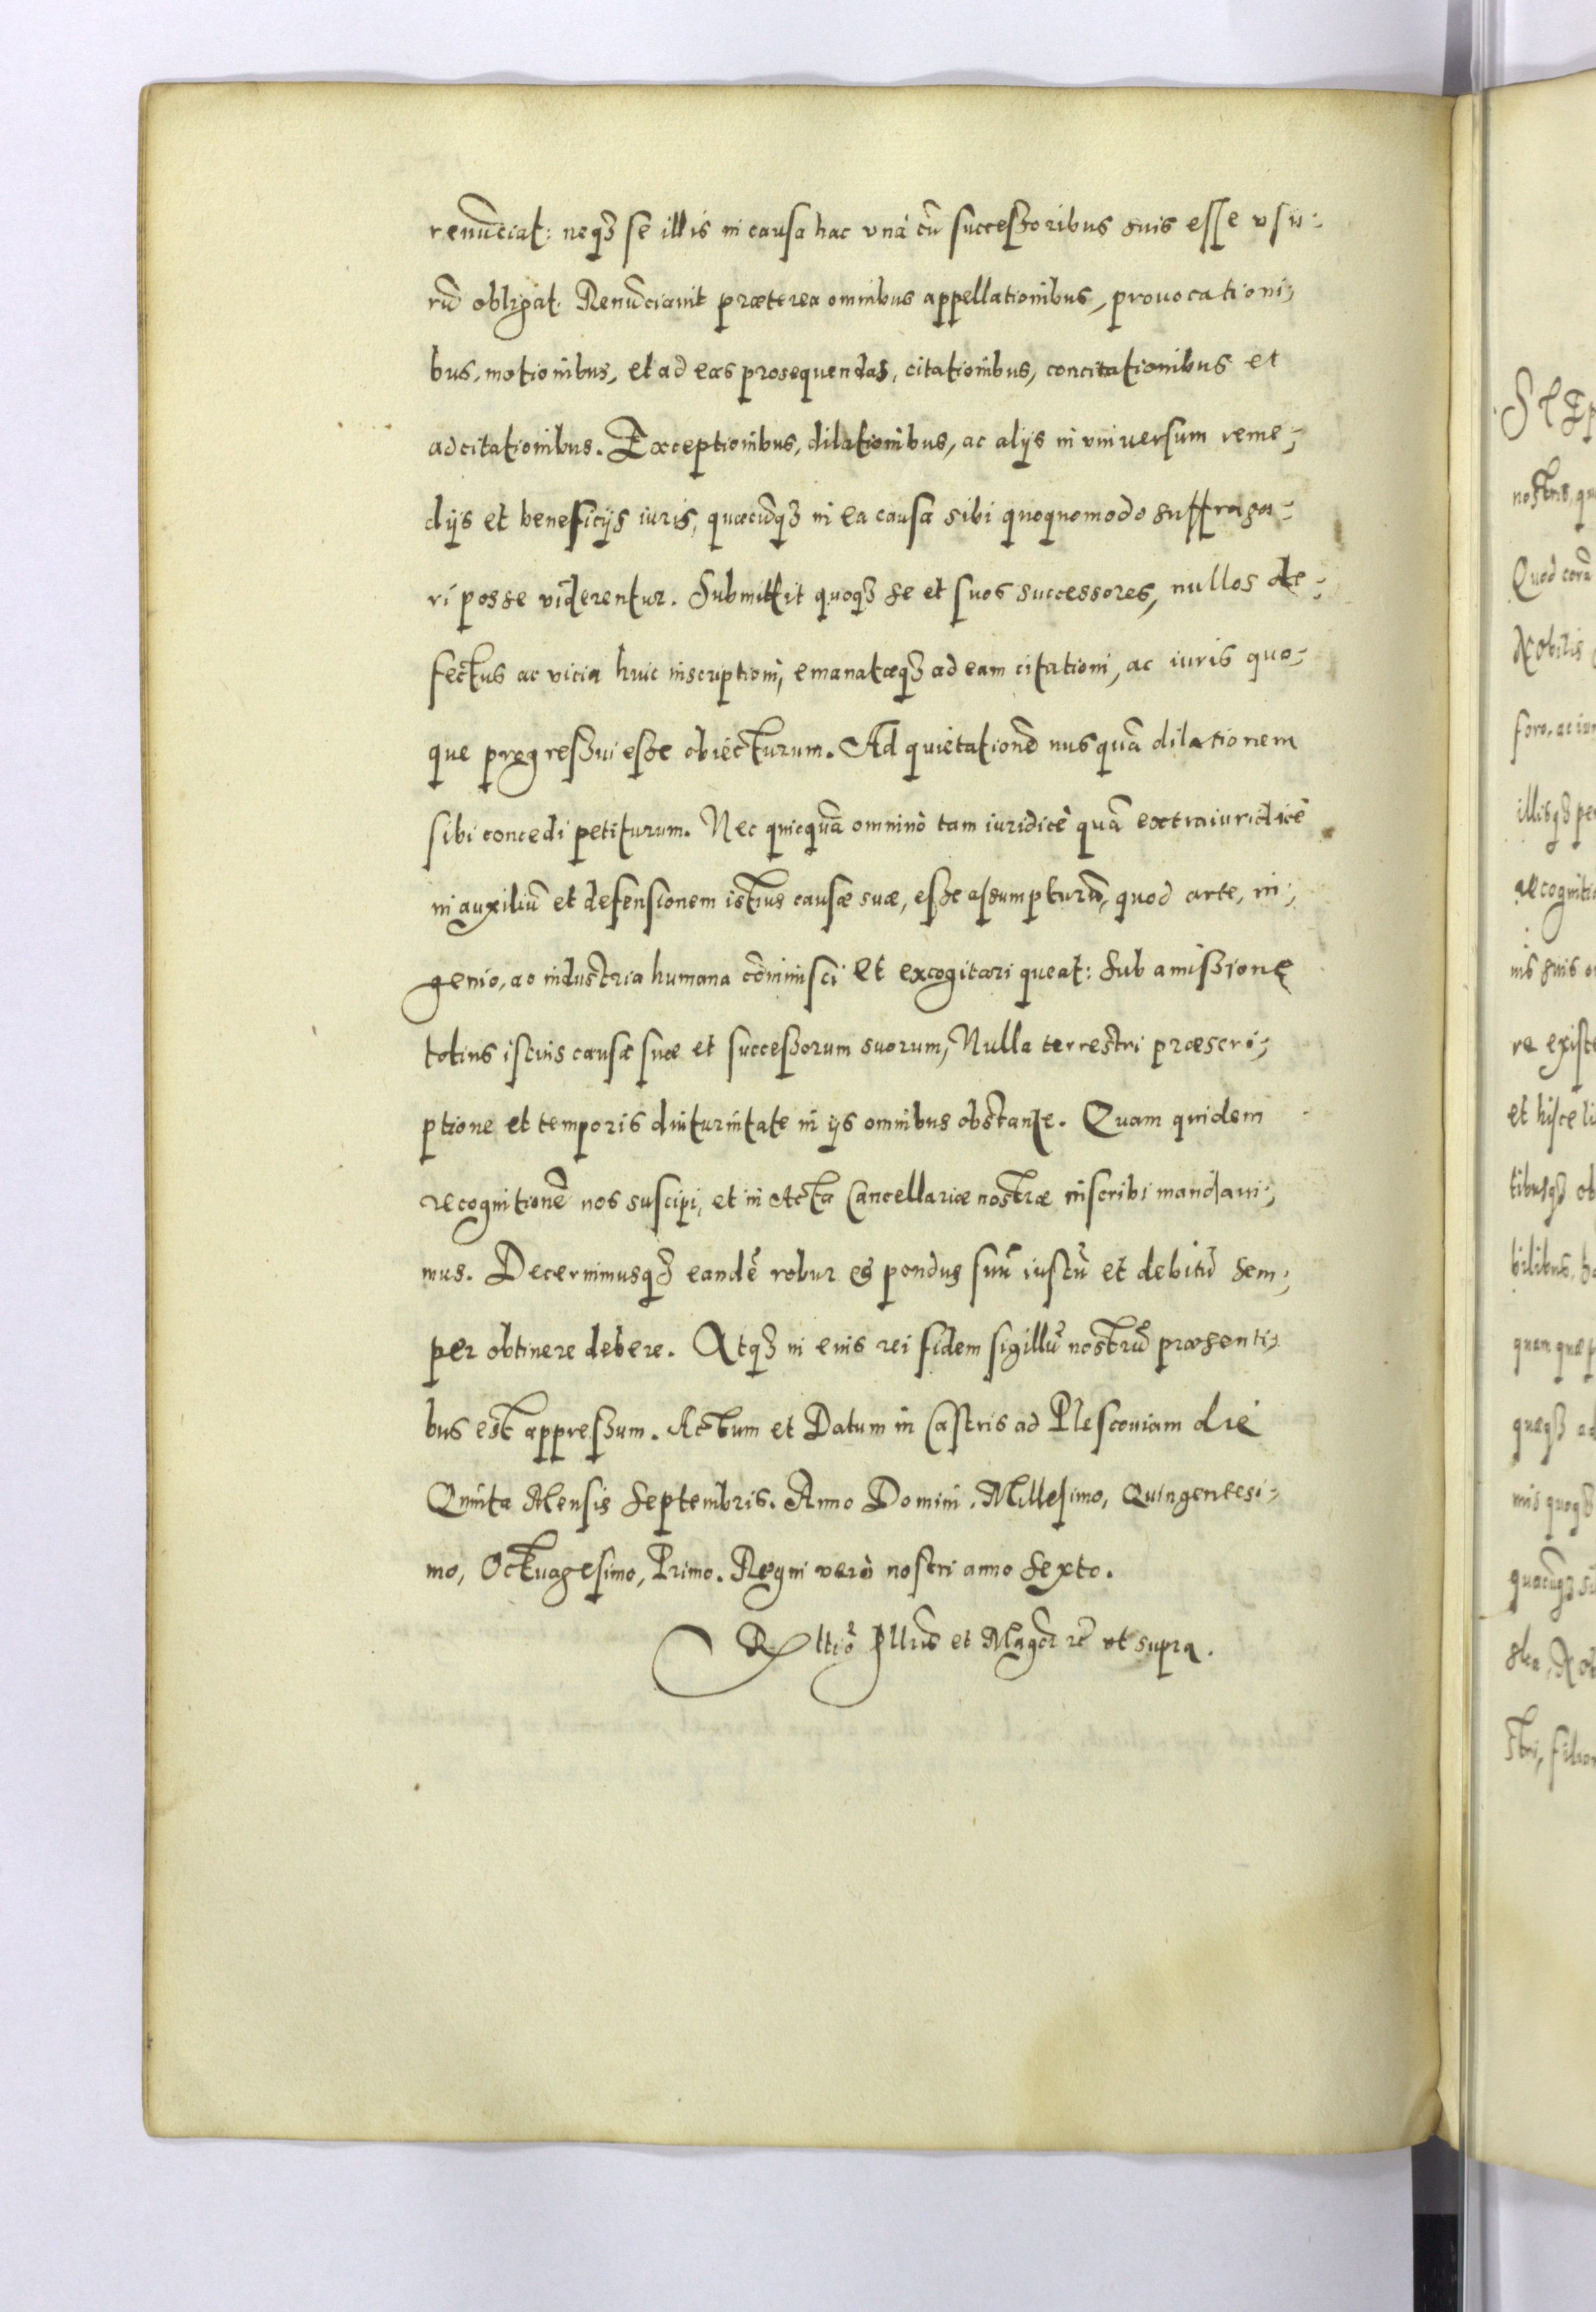 renūciat: neqꝫ se illis in causa hac vnà cū successoribus suis esse vsu-
rū obligat. Renūciauit præterea omnibus appellationibus, prouocationi-
bus, motionibus, et ad eas prosequendas, citationibus, concitationibus et
adcitationibus. Exceptionibus, dilationibus, ac alijs in vniuersum reme-
dijs et beneficijs iuris, quæcūqꝫ in ea causa sibi quoquomodo suffraga-
ri posse viderentur. Submittit quoqꝫ se et suos successores, nullos de-
fectus ac vicia huic inscriptioni, emanatæqꝫ ad eam citationi, ac iuris quo-
que progressui esse obiecturum. Ad quietationē nusquā dilationem
sibi concedi petiturum. Nec quicquā omninò tam iuridicè quā extraiuridicè
in auxiliū et defensionem istius causæ suæ, esse assumpturū, quod arte, in-
genio, ac industria humana cōminisci et excogitari queat: sub amissione
totius istius causæ suæ et successorum suorum, Nulla terrestri præscri-
ptione et temporis diuturnitate in ijs omnibus obstante. Quam quidem
recognitionē nos suscipi, et in Acta Cancellariæ nostræ inscribi mandaui-
mus. Decernimusqꝫ eandē robur et pondus suū iustū et debitū sem-
per obtinere debere. Atqꝫ in euis rei fidem sigillū nostrū præsenti-
bus est appressum. Actum et Datum in Castris ad Plescouiam die
Quinta Mensis Septembris. Anno Domini. Millesimo, Quingentesi-
mo, Octuagesimo, Primo. Regni verò nostri anno sexto.
Rltiō Illris et Magci rē vt supra.

Quod corā
Nobilis
foro, ac iur
illisqꝫ per
recogniti
re existe
et hisce li
tibusqꝫ ob